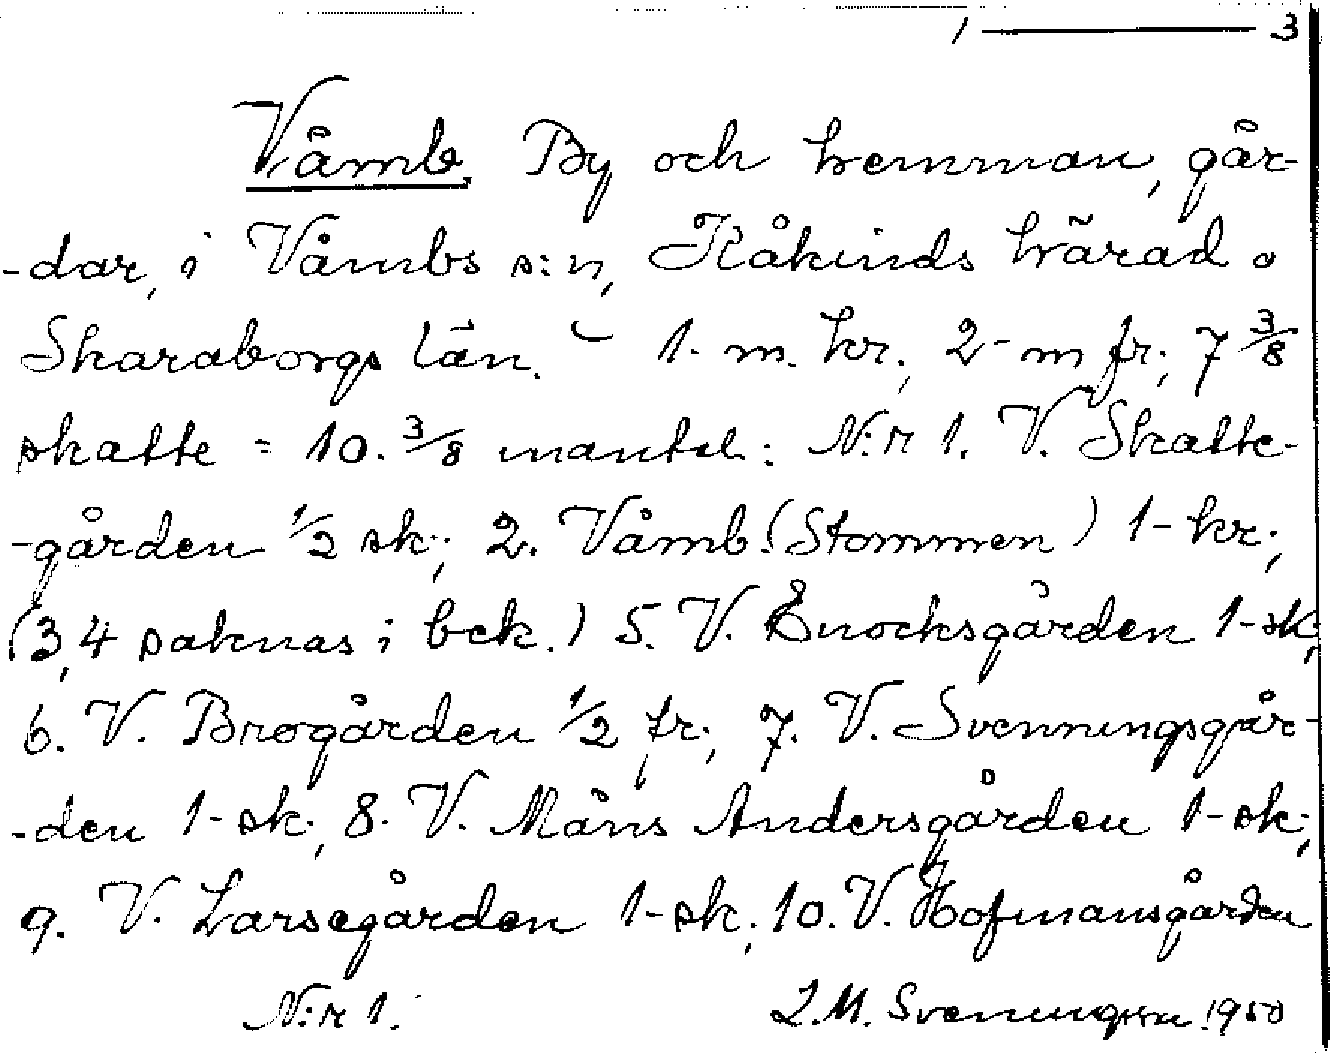 1 ——— 3
Våmb. By och hemman, går-
-dar, i Våmbs s:n, Kåkinds härad o
Skaraborgs län. - 1. m. kr.; 2 - m fr.; 7 3/8
skatte = 10. 3/8 mantal: N:r 1. V. Skatte-
-gården 1/2 sk.; 2. Våmb. (Stommen) 1 - kr.;
(3,4 saknas i bek.) 5. V. Enocksgården 1 - sk;
6. V. Brogården 1/2 fr.; 7. V. Svenningsgår-
-den 1 - sk.; 8. V. Måns Andersgården 1 - sk.;
9. V. Larsegården 1 - sk.; 10. V. Hofmansgården
N:r 1. 1950